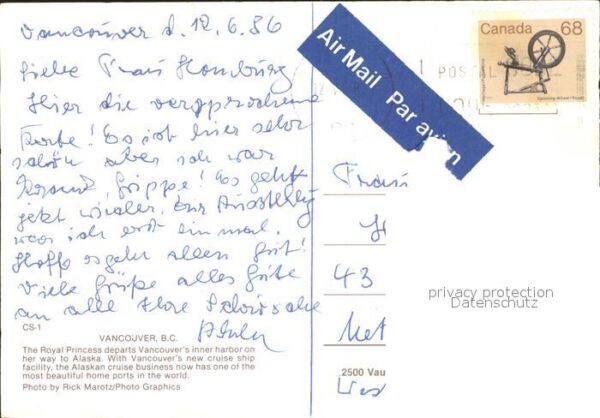 Vancouver d. 12.6.86
Liebe Frau Homburg
Hier die versprochene
Karte! Es ist hier sehr
schön aber ich war
krank, Grippe! Es geht
jetzt wieder. Zur Ausstellung
war ich erst einmal.
Hoffe es geht allen gut!
Viele Grüße alles Gute
an alle Ihre
CS-1
VANCOUVER, B.C.
The Royal Princess departs Vancouver's inner harbor on
her way to Alaska. With Vancouver's new cruise ship
facility, the Alaskan cruise business now has one of the
most beautiful home ports in the world.
Photo by Rick Marotz/Photo Graphics
Air Mail Par avion
Canada 68
POSTAL
Frau
43
privacy protection
Datenschutz
Met
2500 Vau
Wes